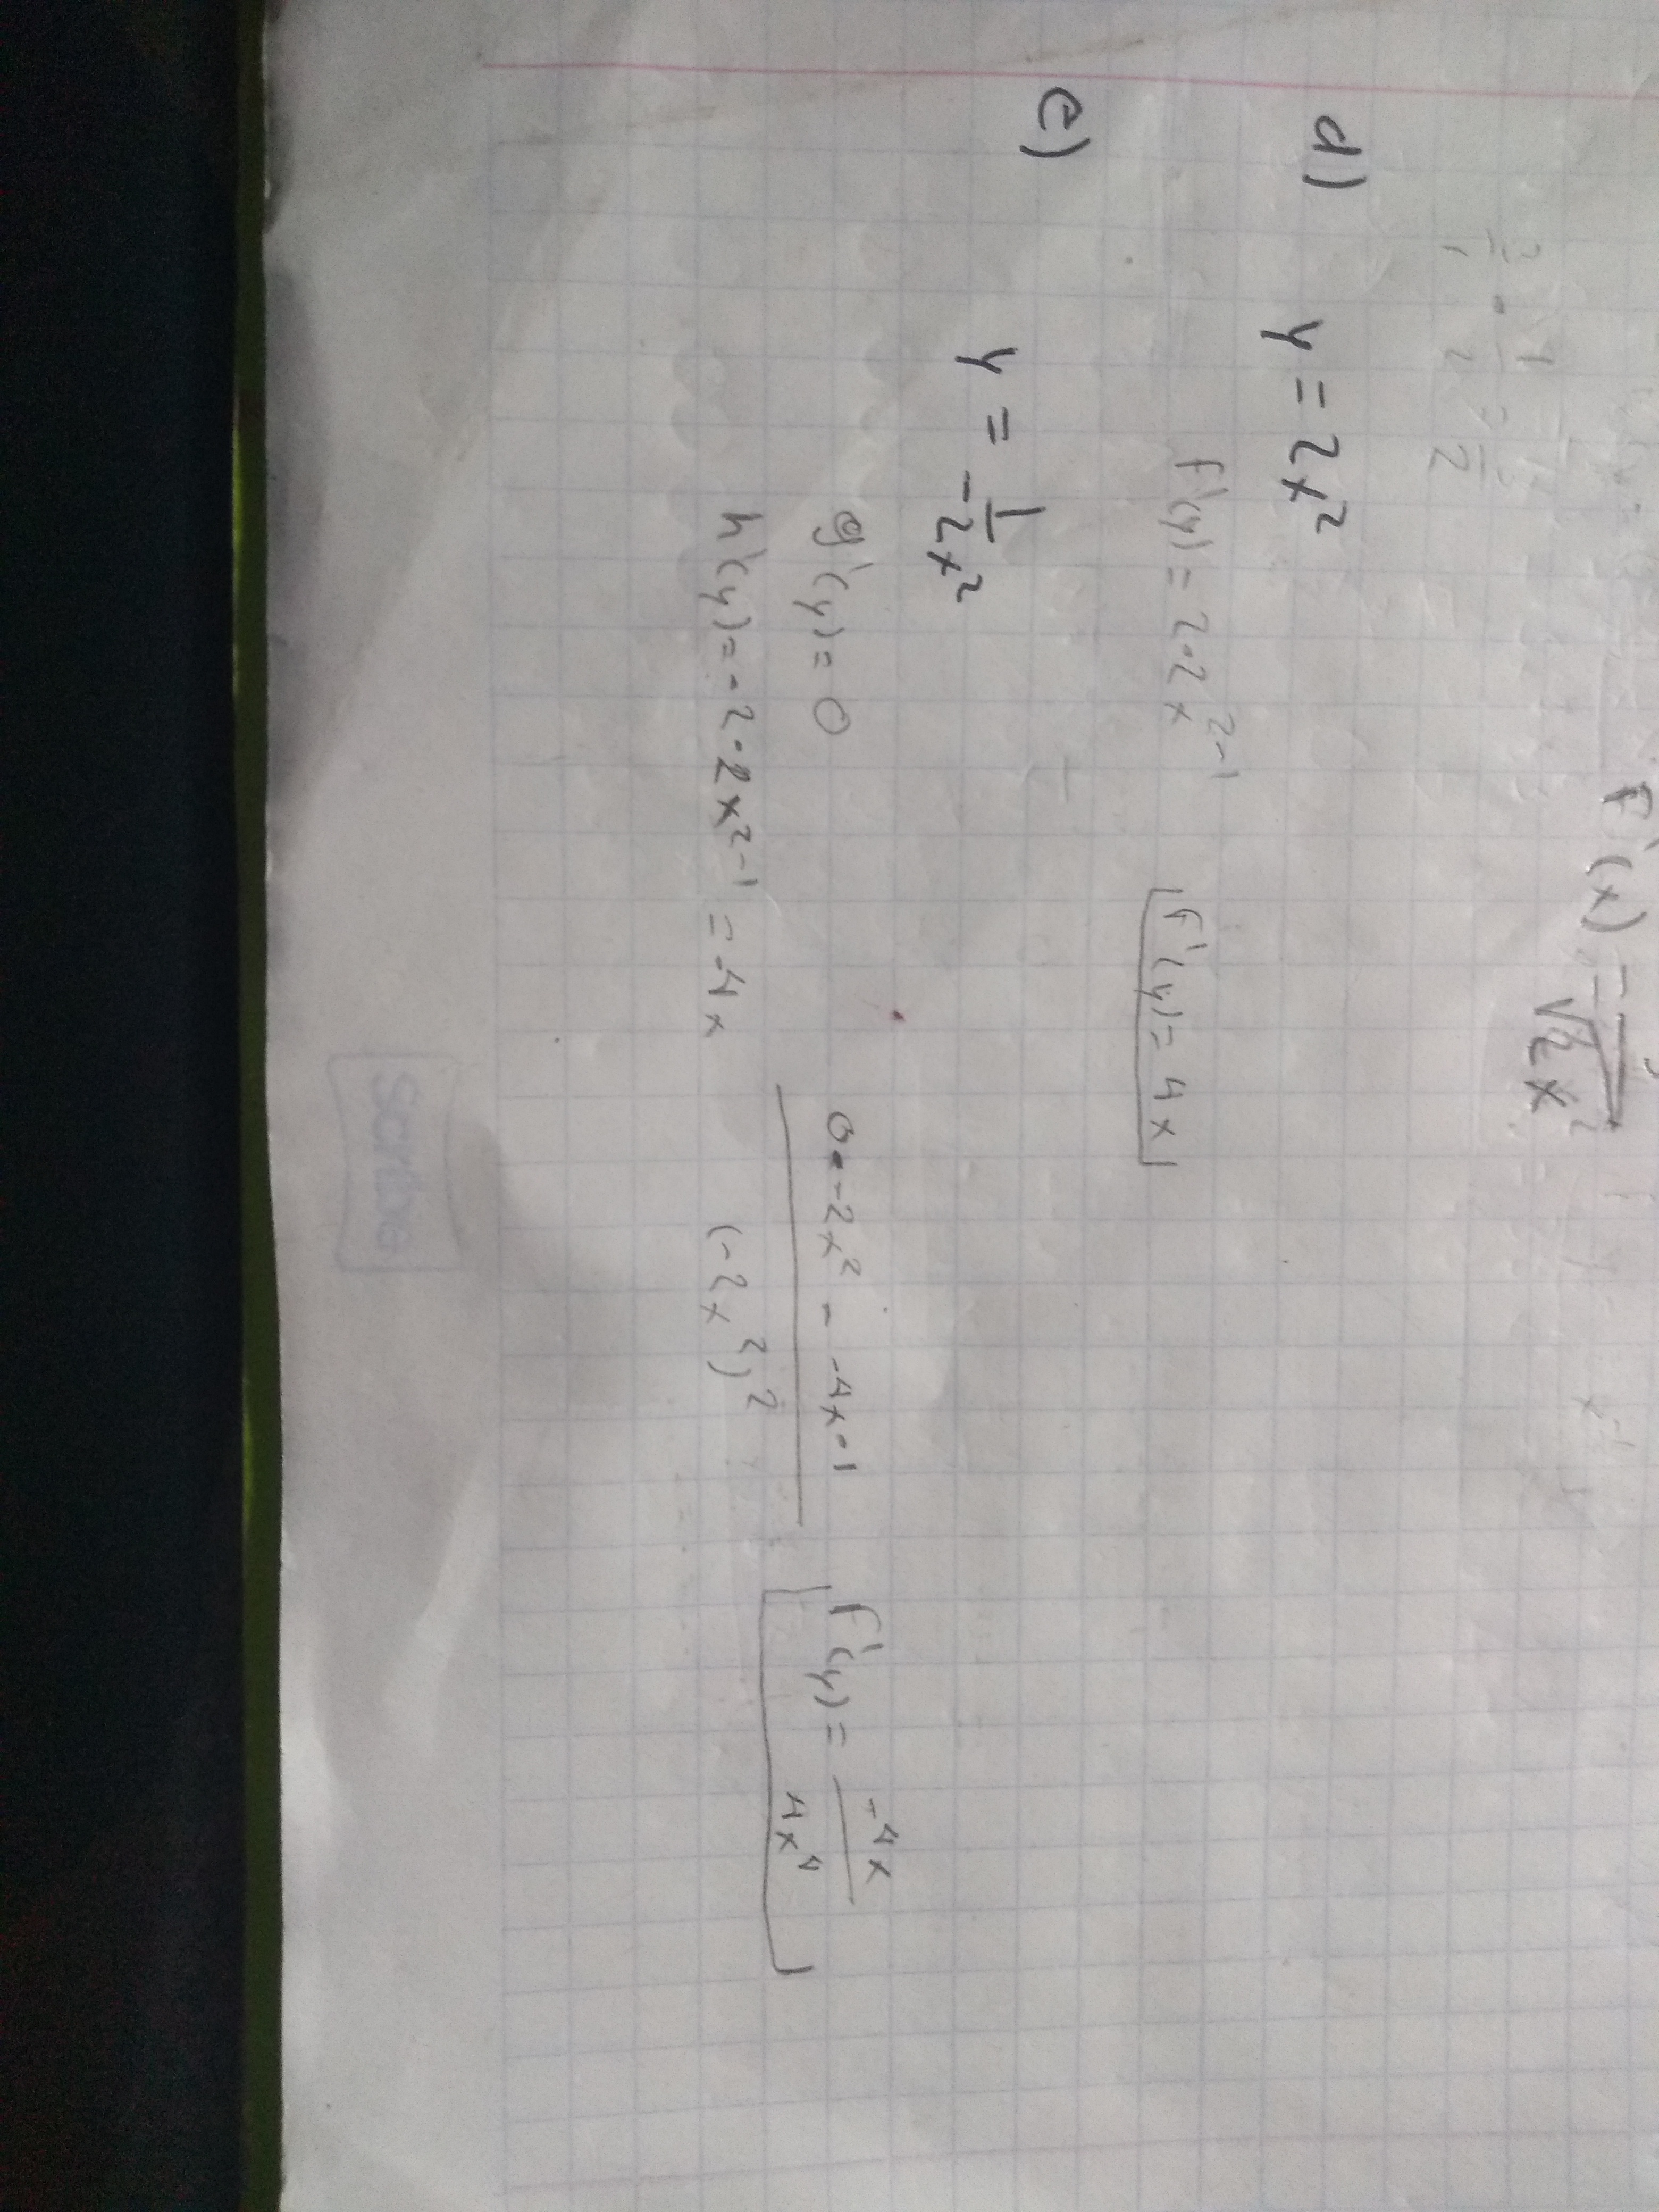 F'(x) =
√2x²
d) y = 2x²
f'(y) = 2·2x²⁻¹ f'(y) = 4x
e) y = 1/-2x²
g'(y) = 0
h'(y) = -2·2x²⁻¹ = -4x
0·-2x² - -4x·1
(-2x²)²
f'(y) = -4x/4x⁴
Scribe